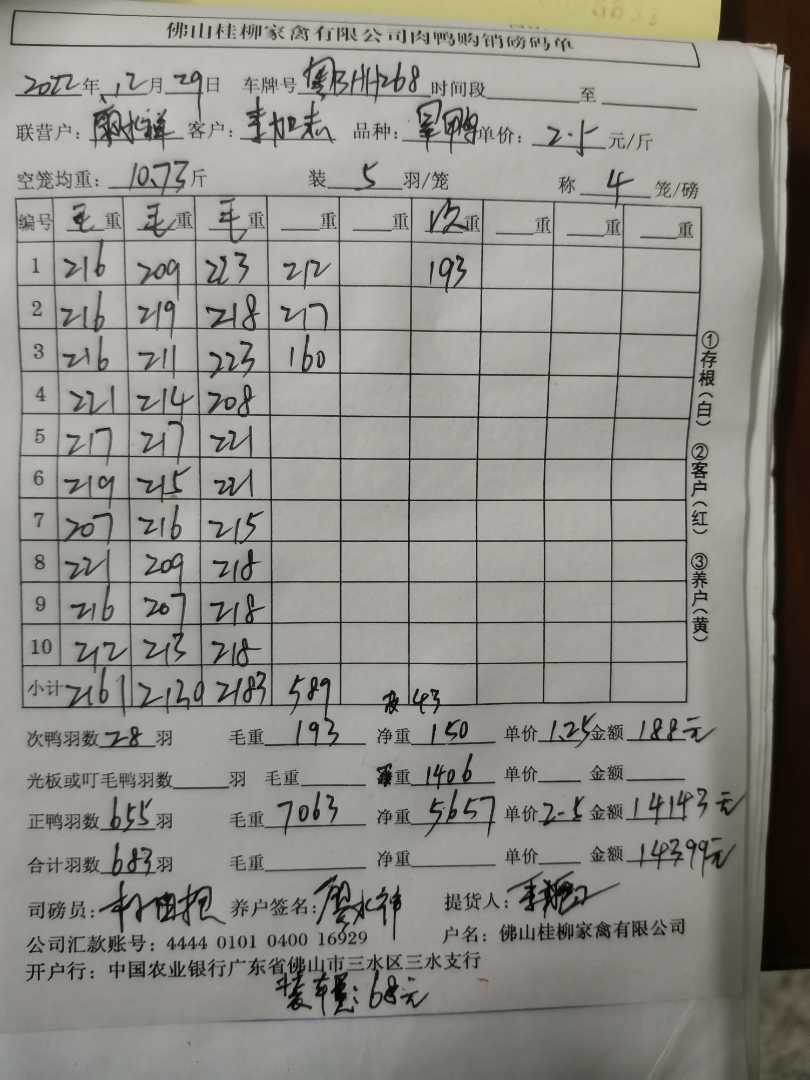 佛山桂柳家禽有限公司肉鸭购销磅码单
2022年12月29日 车牌号 粤BHH268 时间段 至
联营户: 廖水祥 客户: 李加志 品种: 军鸭 单价: 2.5 元/斤
空笼均重: 10.73 斤 装 5 羽/笼 称 4 笼/磅
编号 毛重 毛重 毛重 重 重 次重 重 重 重
1 216 209 223 212 193
2 216 219 218 217
3 216 211 223 160
4 221 214 208
5 217 217 221
6 219 215 221
7 207 216 215
8 221 209 218
9 216 207 218
10 212 213 218
小计 2161 2130 2183 589
皮 43
次鸭羽数 28 羽 毛重 193 净重 150 单价 1.25 金额 188元
光板或叮毛鸭羽数 羽 毛重 重 1406 单价 金额
正鸭羽数 655 羽 毛重 7063 净重 5657 单价 2.5 金额 14143元
合计羽数 683 羽 毛重 净重 单价 金额 14399元
司磅员: 养户签名: 廖水祥 提货人:
公司汇款账号: 4444 0101 0400 16929 户名: 佛山桂柳家禽有限公司
开户行: 中国农业银行广东省佛山市三水区三水支行
装车费: 68元
①存根(白) ②客户(红) ③养户(黄)